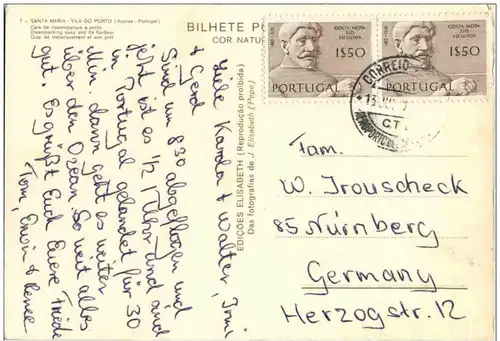 7 - SANTA MARIA - VILA DO PORTO (Açores - Portugal)
Cais de desembarque e porto
Disembarking quay and de harbour
Quai de debarquement et son port
BILHETE PO
COR NATU
COSTA MOTA
TIO
ESCULTOR
1$50
PORTUGAL
COSTA MOTA
TIO
ESCULTOR
1$50
PORTUGAL
CORREIO
C.T.
EDIÇÕES ELISABETH (Reprodução proibida)
Das fotografias de J. Elisabeth (Pepe)
Liebe Karola + Walter, Irmi
+ Gerd
Sind um 830 abgeflogen und
jetzt ist es 1/2 1 Uhr und sind
in Portugal gelandet für 30
Min, dann geht es weiter
über den Ozean. So weit alles
gut. Es grüßt Euch Eure Friede
Tom, Erwin + Renee
Fam.
W. Trouscheck
85 Nürnberg
Germany
Herzogstr. 12